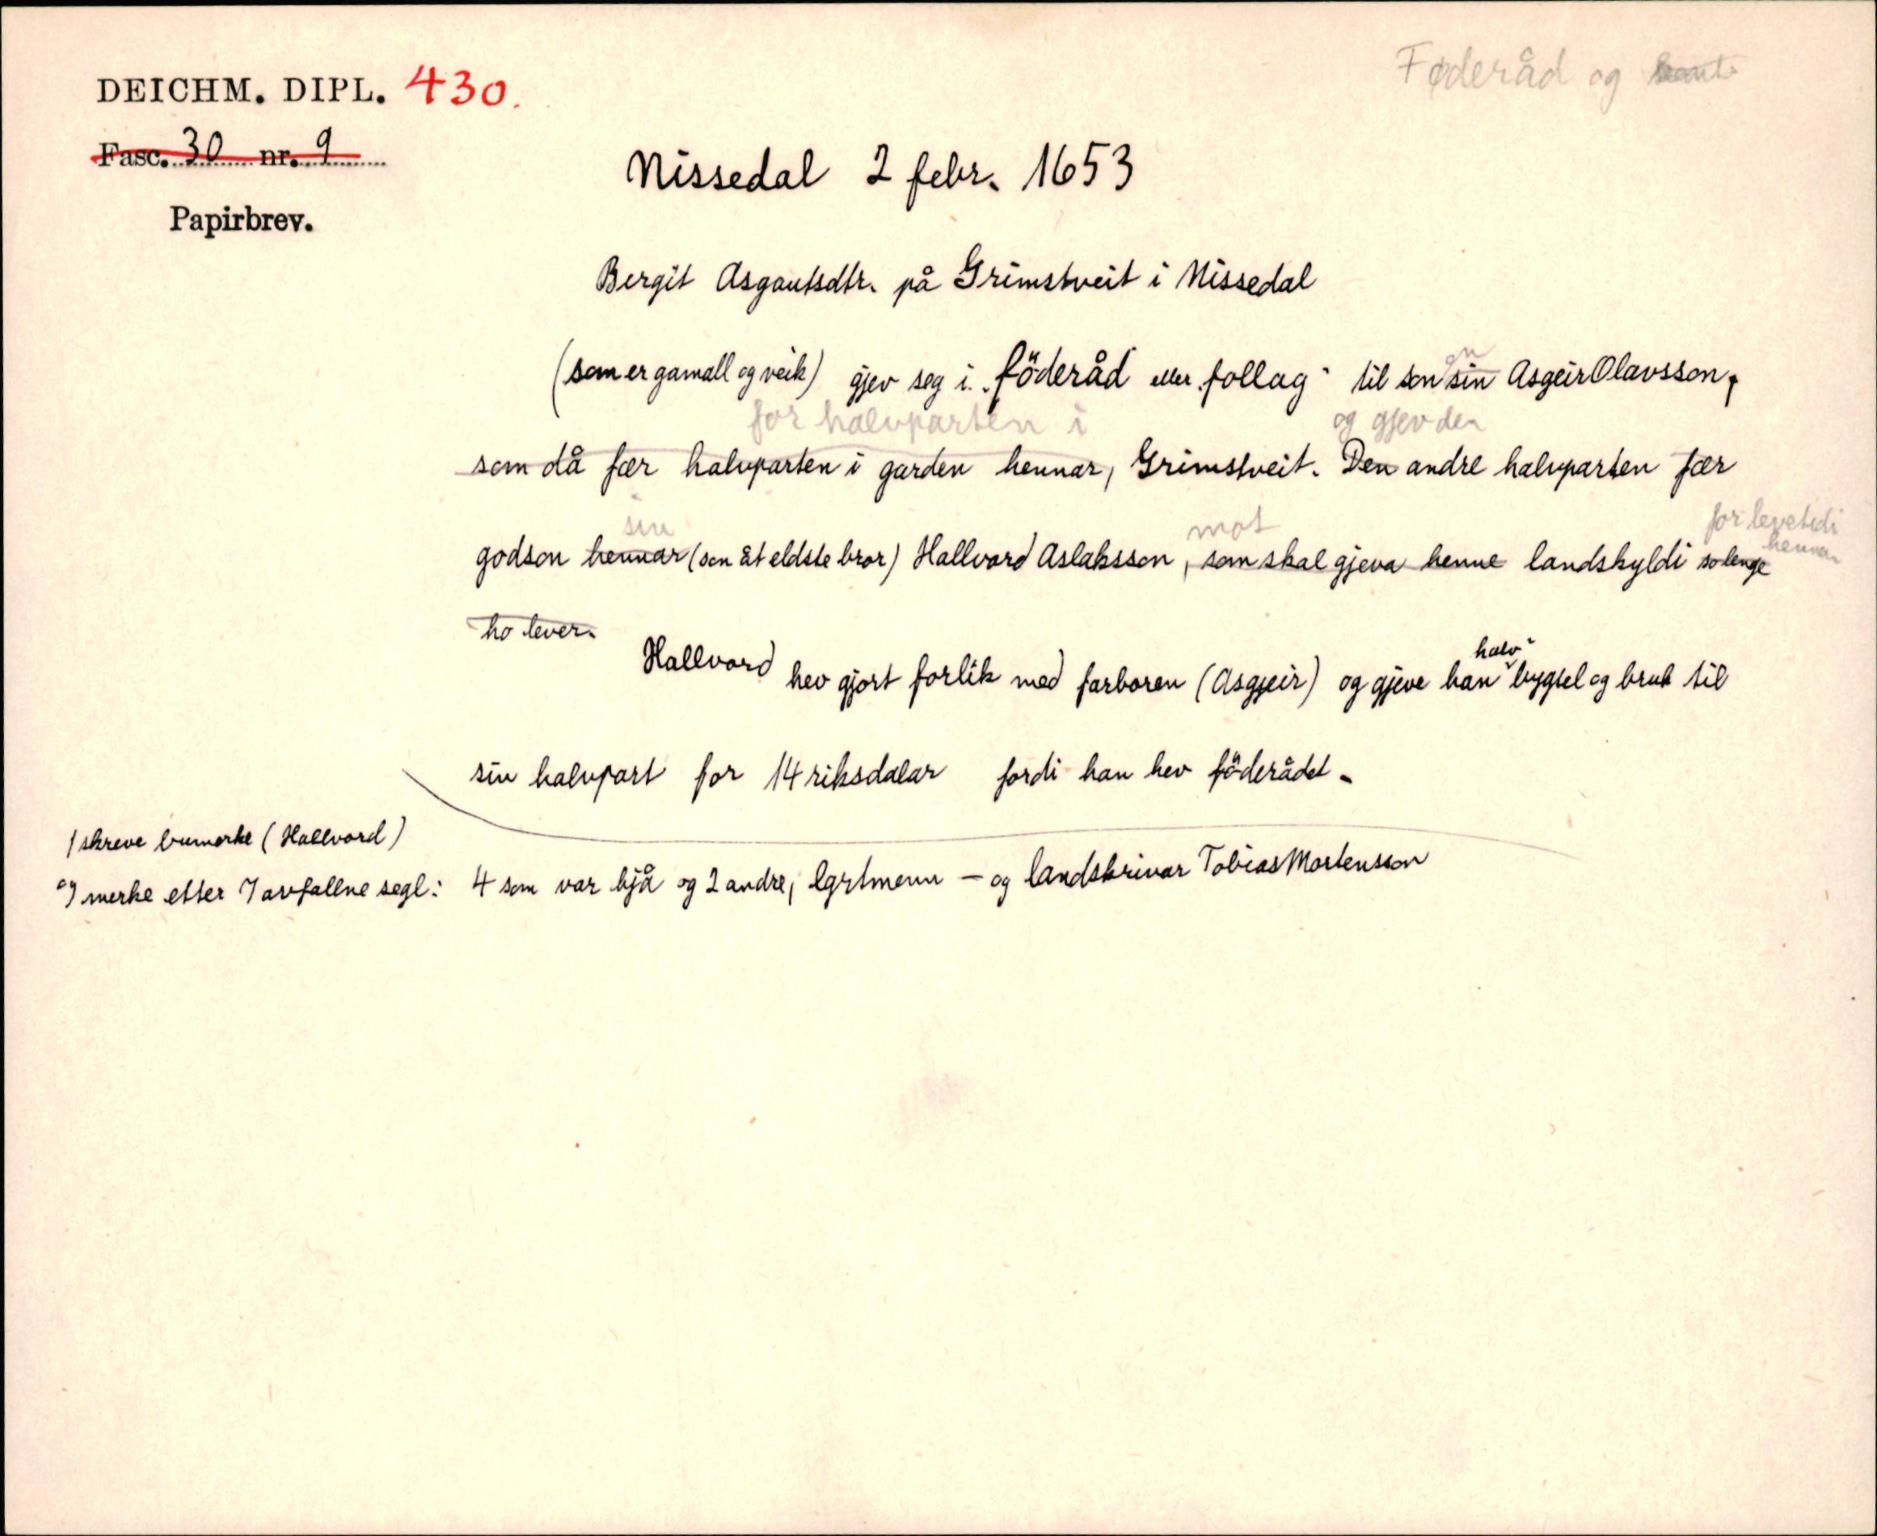 DEICHM. DIPL. 430.
Føderåd og
Fasc. 30 nr. 9
Papirbrev.
Nissedal 2 febr. 1653
Bergit Asgautsdtr. på Grimstveit i Nissedal
(som er gamall og veik) gjev seg i "föderåd eller follag" til son sin Asgeir Olavsson,
for halvparten i og gjev den
som då fær halvparten i garden hennar, Grimstveit. Den andre halvparten fær
sin mot for levetidi hennar
godson hennar (son åt eldste bror) Hallvord Aslaksson, som skal gjeva henne landskyldi so lenge
ho lever.
halv
Hallvord hev gjort forlik med farboren (Asgjeir) og gjeve han bygsel og bruk til
sin halvpart for 14 riksdalar fordi han hev föderådet.
1 skreve bumerke (Hallvord)
og merke etter 7 avfallne segl: 4 som var hjå og 2 andre, lgrtmenn – og landskrivar Tobias Mortensson